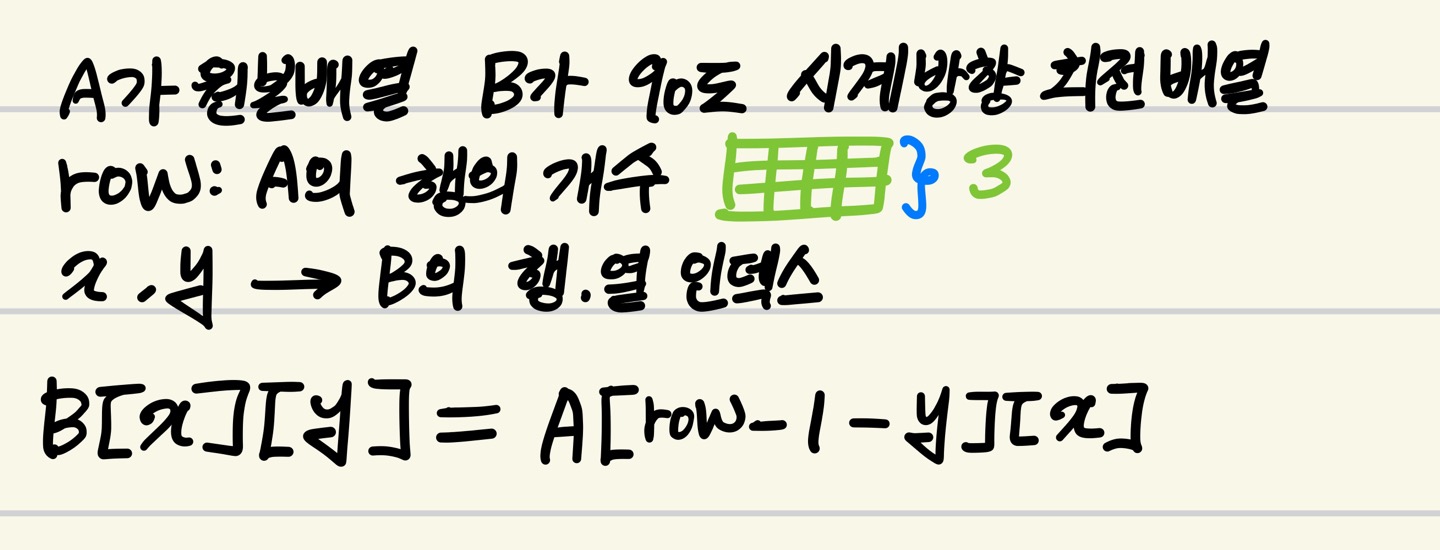 A가 원본배열 B가 90도 시계방향 회전 배열
row: A의 행의 개수 3
x, y → B의 행.열 인덱스
B[x][y] = A[row-1-y][x]